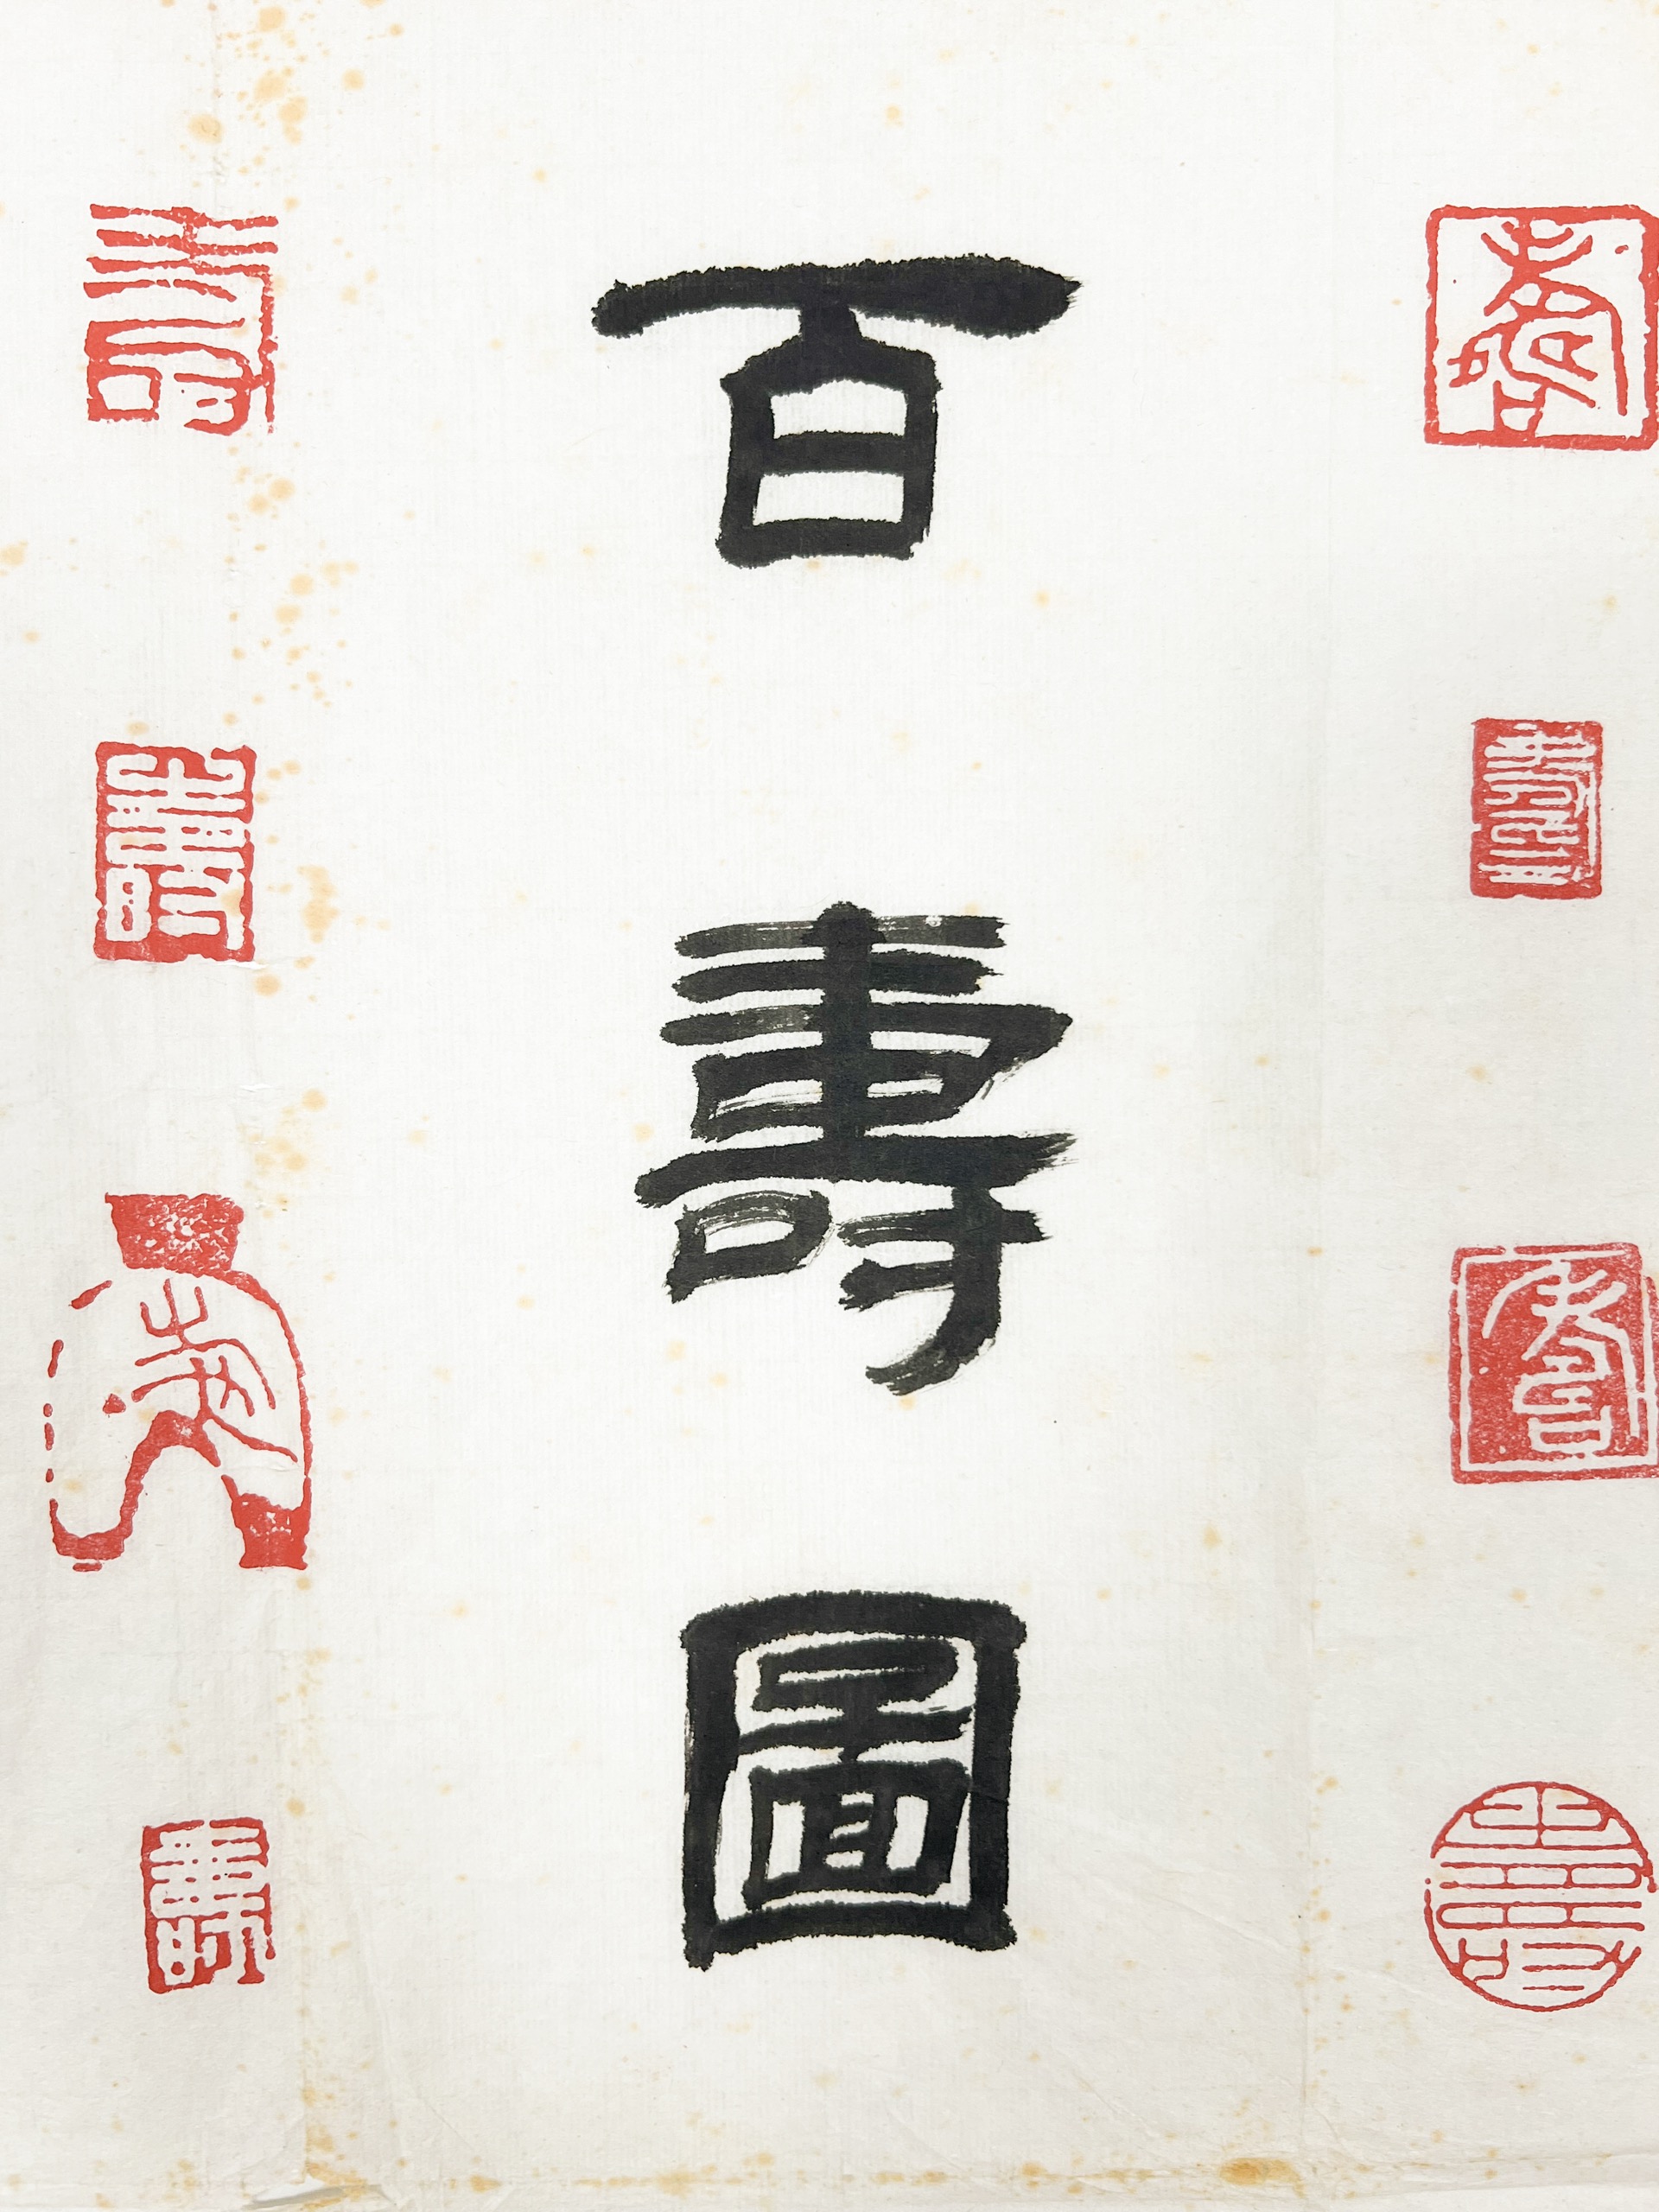 百壽圖
壽
壽
壽
壽
壽
壽
壽
壽